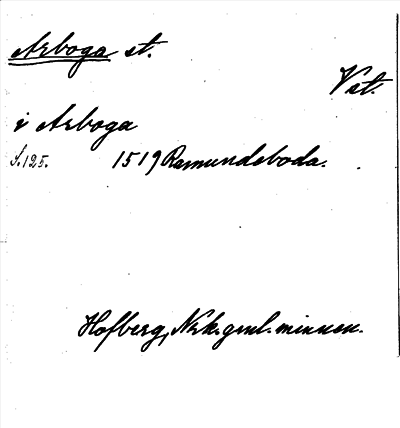 Arboga st.
Vst.
i Arboga
S. 125. 1519 Ramundeboda.
Hofberg, Nrk. gml. minnen.